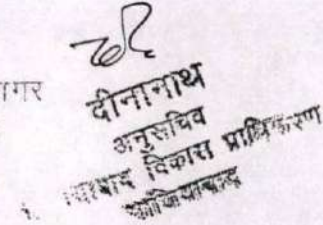 गर
दीनानाथ
अनुसचिव
विकास प्राधिकरण
गाजियाबाद